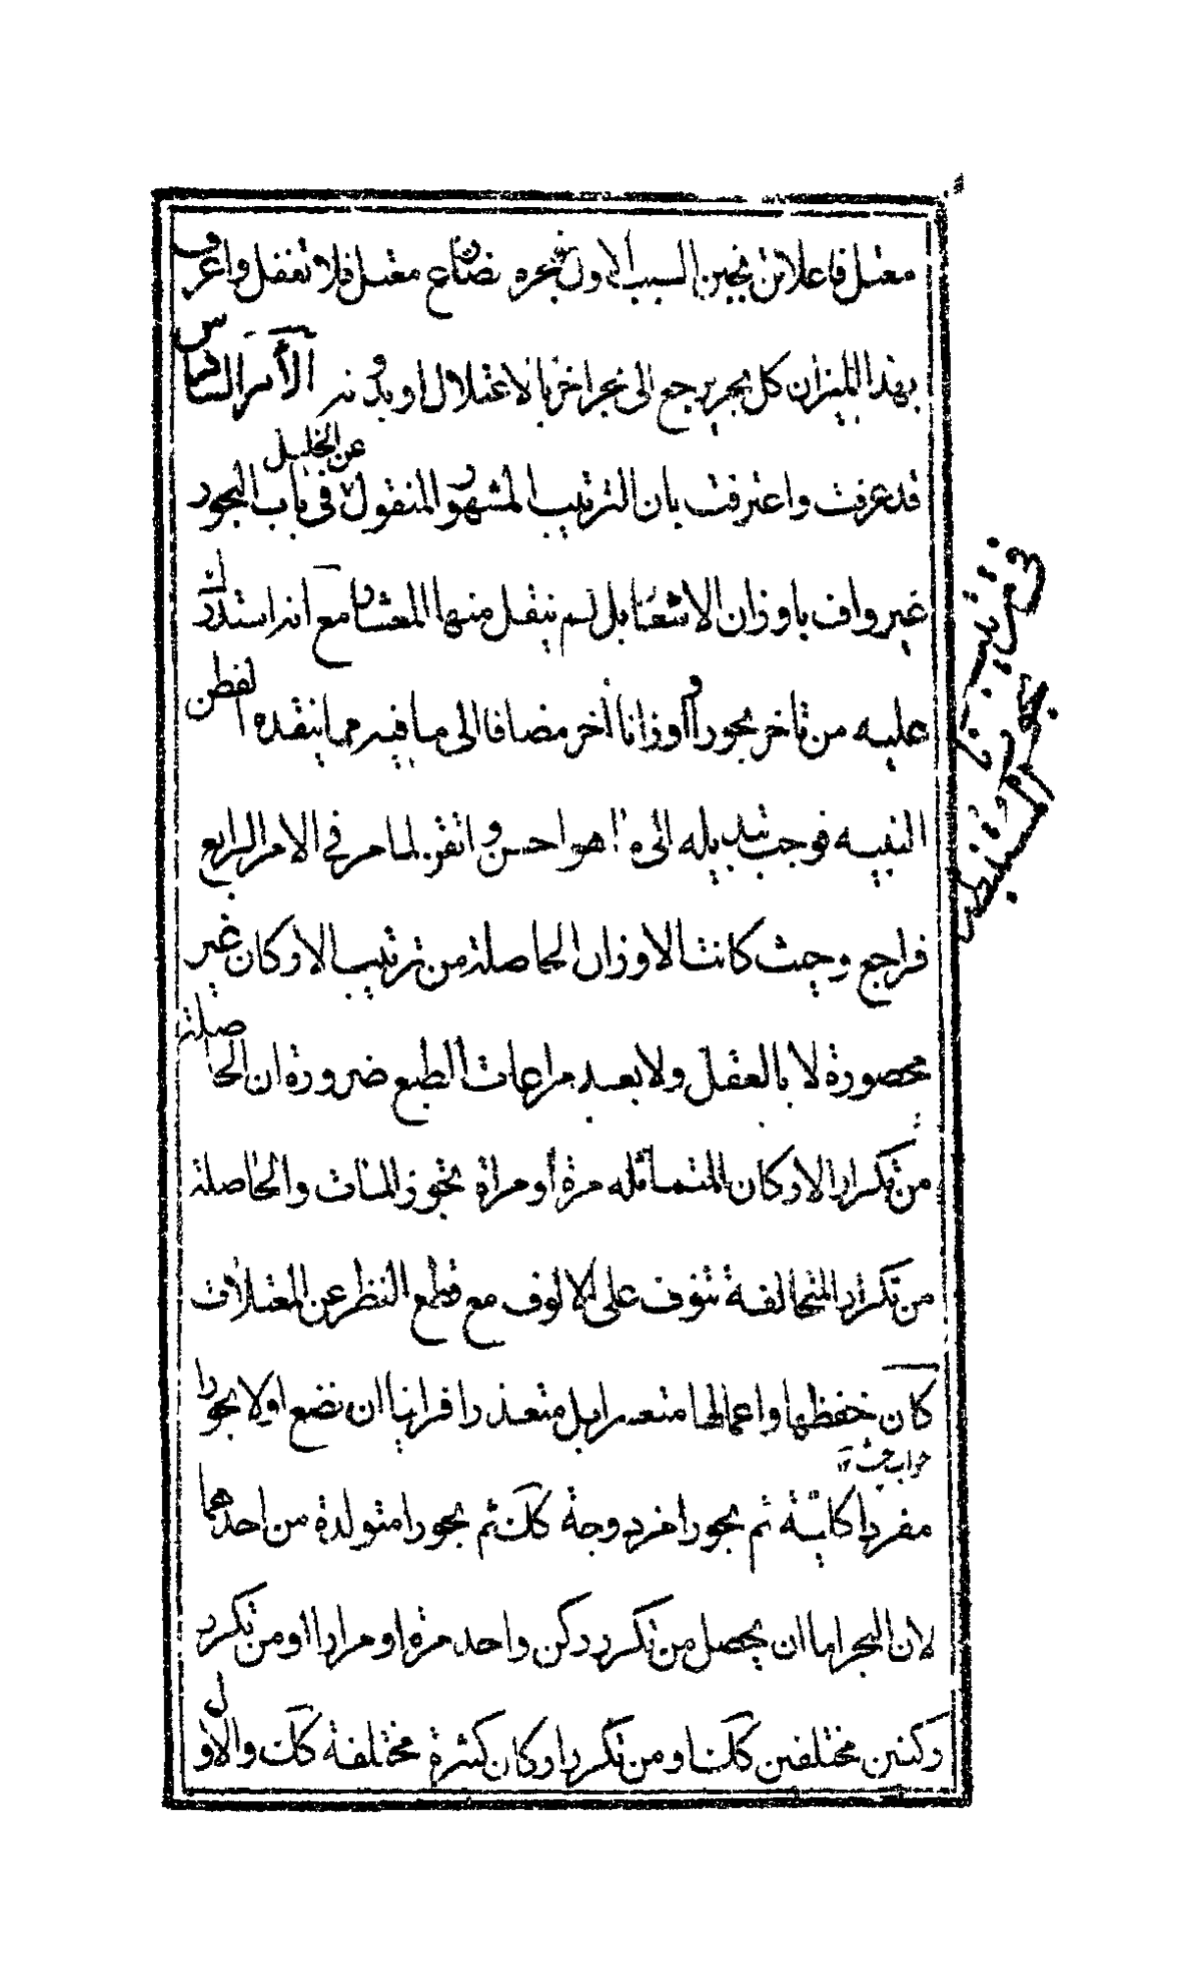 معتل فاعلاتن نجين السبب الاول فبحره نضاع معتل فلا تغفل واعرف
بهذا الميزان كل بحر يرجع الى بحر اخر بالاعتلال او بدونه الأمر السادس
قد عرفت واعترفت بان الترتيب المشهور المنقول عن الخليل في باب البحور
غير واف باوزان الاشعار بل لم ينقل منها المعشار مع انه استدرك
عليه من تاخر بحورا و أوزانا أخر مضافا الى ما فيه مما ينقده الفطن
النبيه فوجب تبديله الى ما هو احسن و اتقن لما مر في الامر الرابع
فراجع وحيث كانت الاوزان الحاصلة من ترتيب الاركان غير
محصورة لا بالعقل ولا بعد مراعات الطبع ضرورة ان الحاصلة
من تكرار الاركان المتماثله مرة أو مراة تجوز المئات والحاصلة
من تكرار المتخالفة تنوف على الالوف مع قطع النظر عن المعتلات
كان حفظها واعمالها متعسرا بل متعذرا فراينا ان نضع اولا بحورا
جواب حيث
مفردا كلية ثم بحورا مزدوجة كك ثم بحورا متولدة من احدهما
لان البحر اما ان يحصل من تكرر ركن واحد مرة او مرارا او من تكرر
ركنين مختلفين كك او من تكرر اركان كثيرة مختلفة كك والاول
في تعريف ترتيب
بحور
المستنبطين